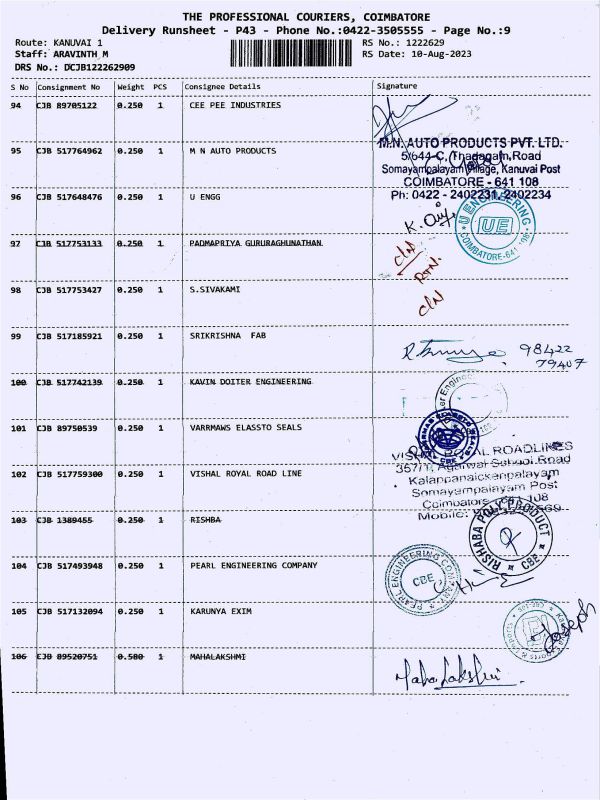 THE PROFESSIONAL COURIERS, COIMBATORE
Delivery Runsheet - P43 - Phone No.:0422-3505555 - Page No.:9
Route: KANUVAI 1 RS No.: 1222629
Staff: ARAVINTH_M RS Date: 10-Aug-2023
DRS No.: DCJB122262909
S No Consignment No Weight PCS Consignee Details Signature
94 CJB 89705122 0.250 1 CEE PEE INDUSTRIES
95 CJB 517764962 0.250 1 M N AUTO PRODUCTS
M.N. AUTO PRODUCTS PVT. LTD.
5/644-C, Thadagam Road
Somayampalayam Village, Kanuvai Post
COIMBATORE - 641 108
Ph: 0422 - 2402231, 2402234
96 CJB 517648476 0.250 1 U ENGG
U ENGINEERING
UE
COIMBATORE-641 108
97 CJB 517753133 0.250 1 PADMAPRIYA GURURAGHUNATHAN
98 CJB 517753427 0.250 1 S.SIVAKAMI
99 CJB 517185921 0.250 1 SRIKRISHNA FAB
98422
79407
100 CJB 517742139 0.250 1 KAVIN DOITER ENGINEERING
101 CJB 89750539 0.250 1 VARRMAWS ELASSTO SEALS
102 CJB 517759300 0.250 1 VISHAL ROYAL ROAD LINE
VISHAL ROYAL ROADLINES
Agarwal School Road
Kalappanaickenpalayam
Somayampalayam Post
Coimbatore
Mobile:
103 CJB 1389455 0.250 1 RISHBA
RISHABA POLY PRODUCT
CBE
104 CJB 517493948 0.250 1 PEARL ENGINEERING COMPANY
PEARL ENGINEERING COMPANY
CBE
105 CJB 517132094 0.250 1 KARUNYA EXIM
Joseph
106 CJB 89520751 0.500 1 MAHALAKSHMI
Mahalakshmi